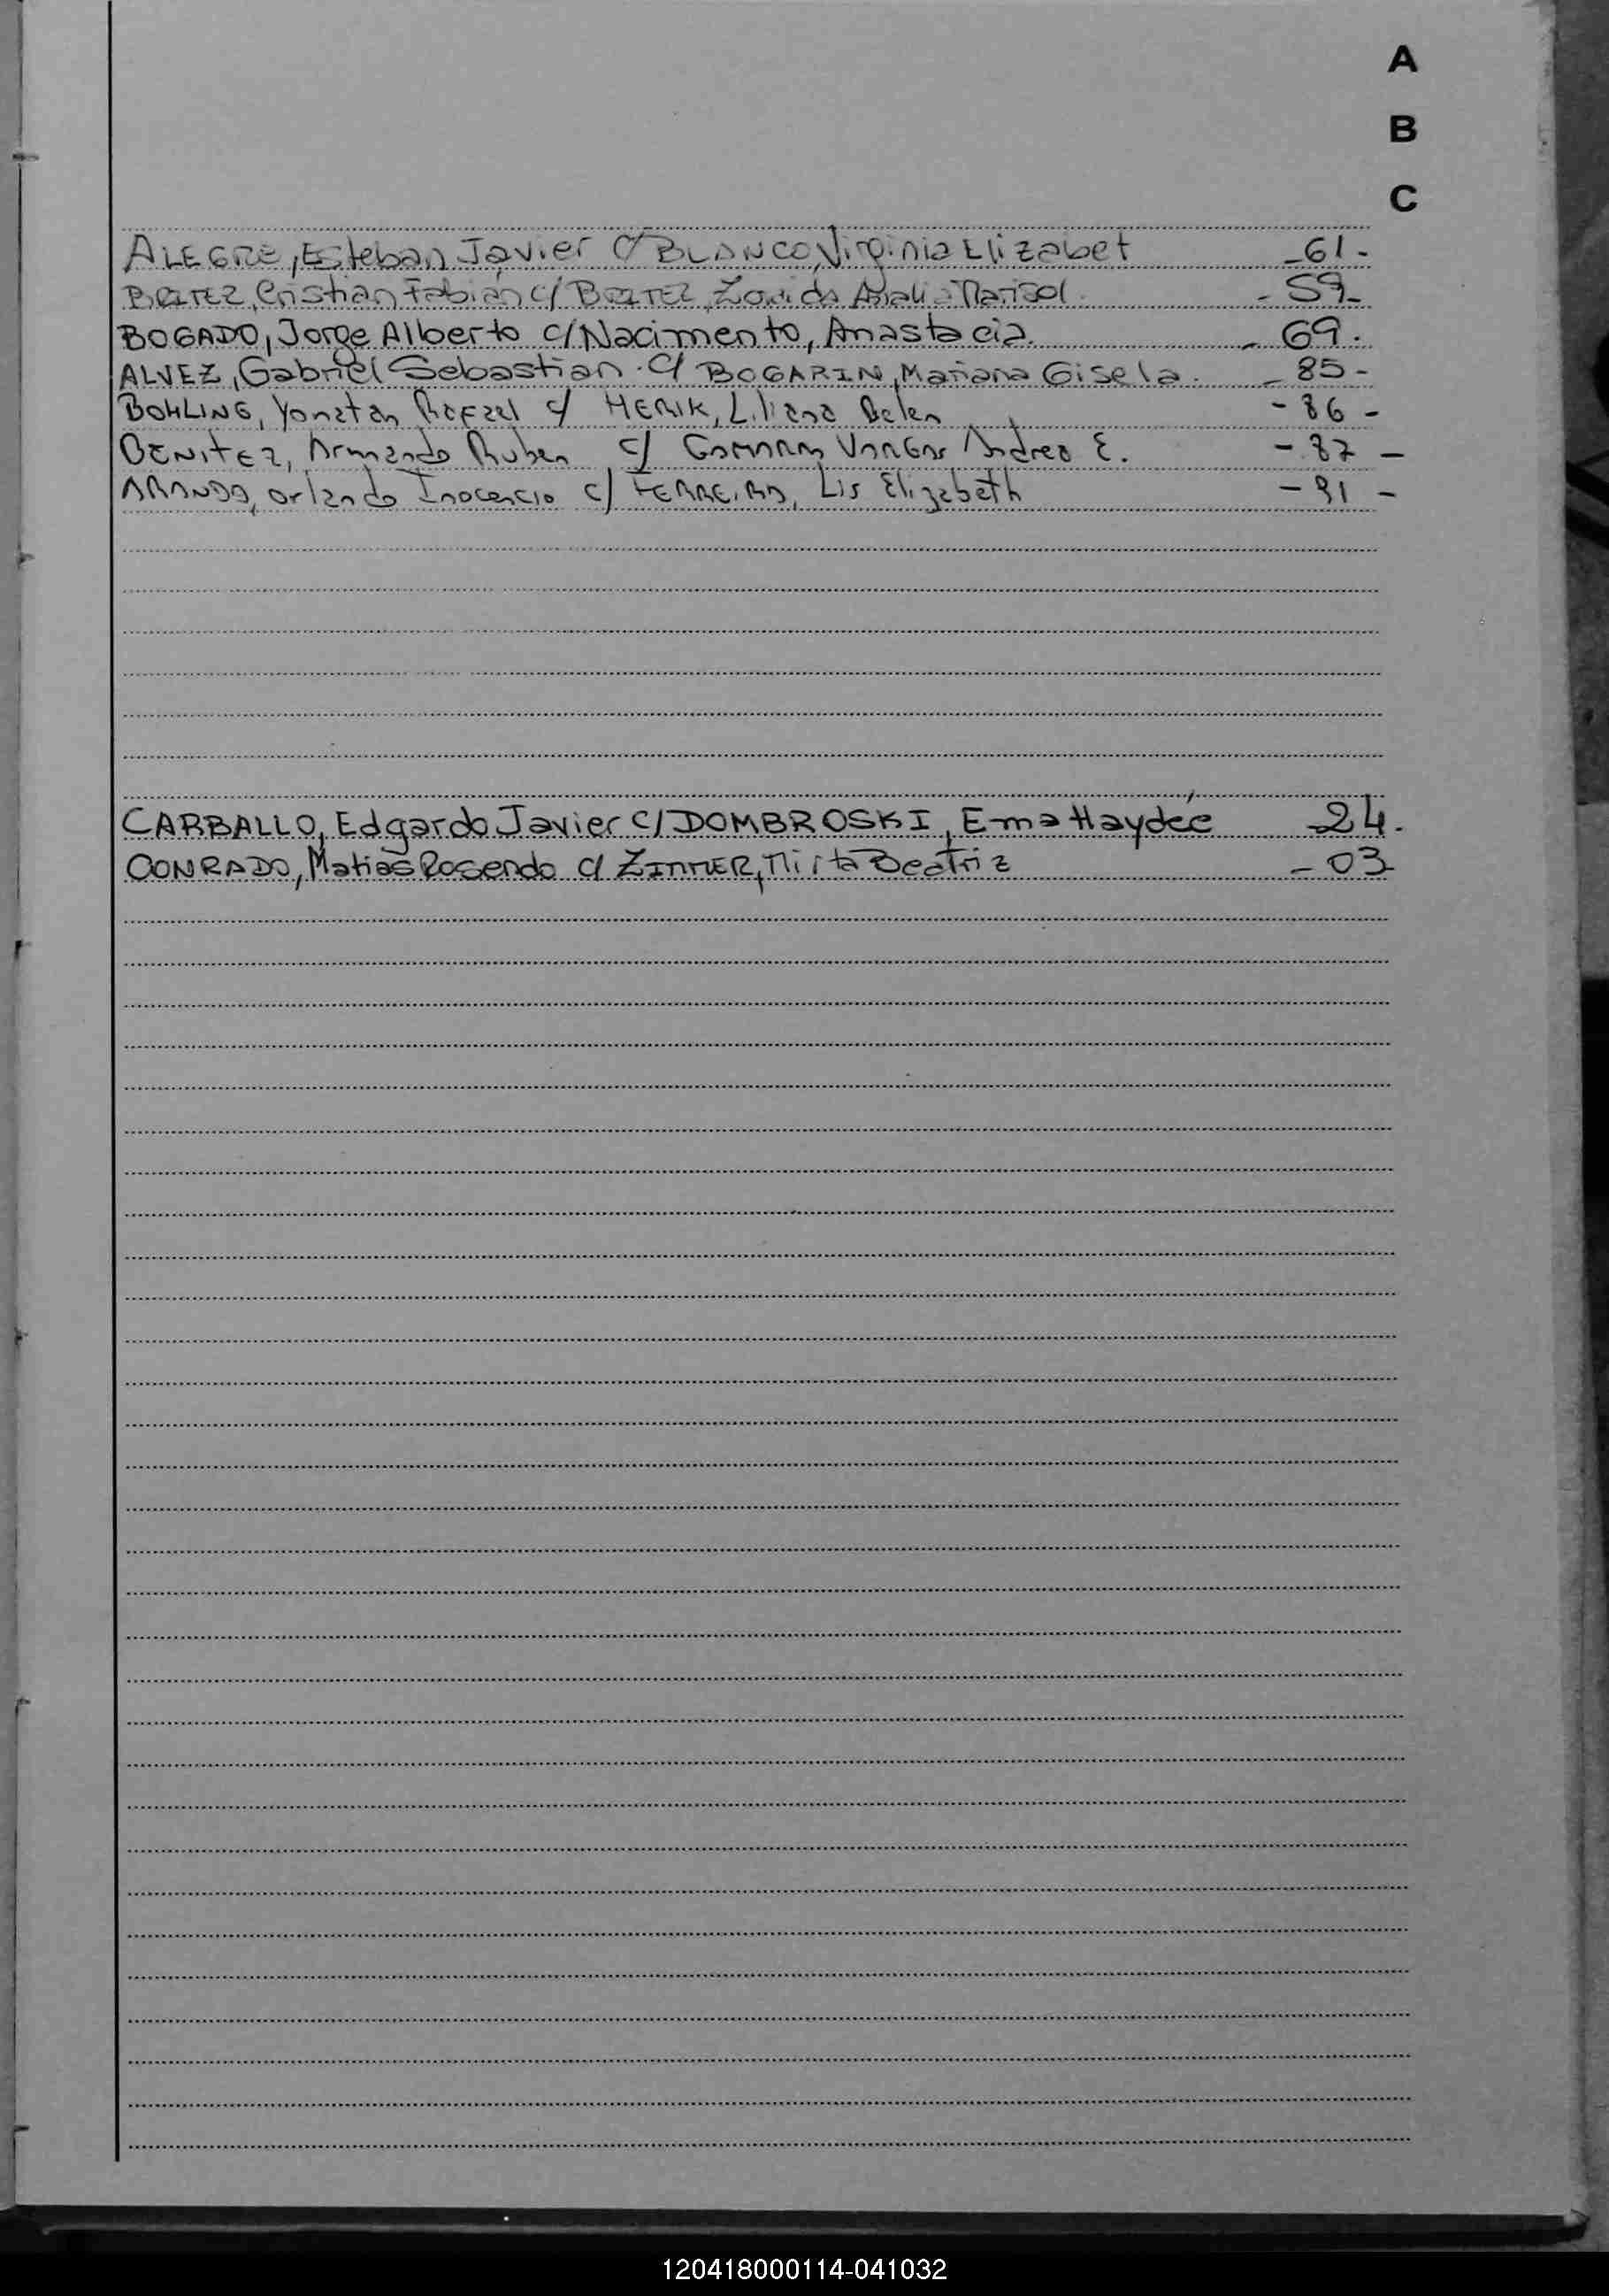 A
B
C
ALEGRE, Esteban Javier C/ BLANCO, Virginia Elizabet -61-
BRITEZ, Cristian Fabian c/ BRITEZ, Zoraida Anali Marisol - 59-
BOGADO, Jorge Alberto c/ Nacimento, Anastacia. - 69.
ALVEZ, Gabriel Sebastian. C/ BOGARIN, Mariana Gisela. - 85-
BOHLING, Yonatan Rafael c/ HERIK, Liliana Belen - 86 -
BENITEZ, Armando Ruben c/ GAMARRA VARGAS Andrea E. - 87 -
ARANDA, Orlando Inocencio c/ FERREIRA, Lis Elizabeth - 91 -
CARBALLO, Edgardo Javier C/ DOMBROSKI, Ema Haydée 24.
CONRADO, Matias Rosendo c/ ZIMMER, Mirta Beatriz - 03
120418000114-041032